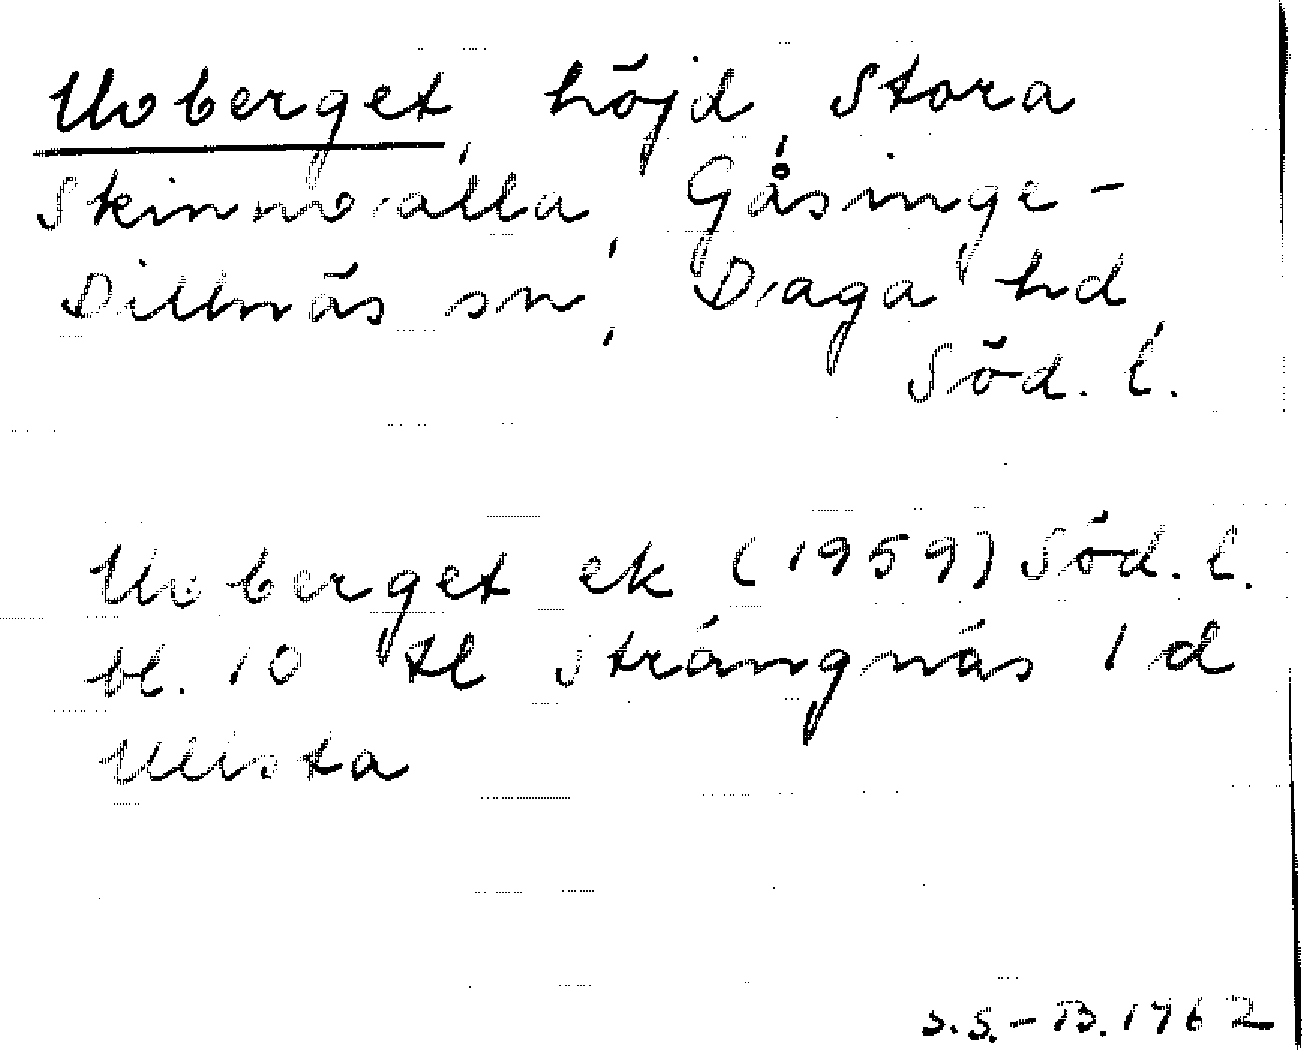 Uvberget, höjd, Stora
Skinnvalla, Gåsinge-
Dillnäs sn, Daga hd,
Söd. l.
Uvberget ek (1959) Söd. l.
bl. 10 tl Strängnäs 1 d
Ullsta
S.S.-B. 1962